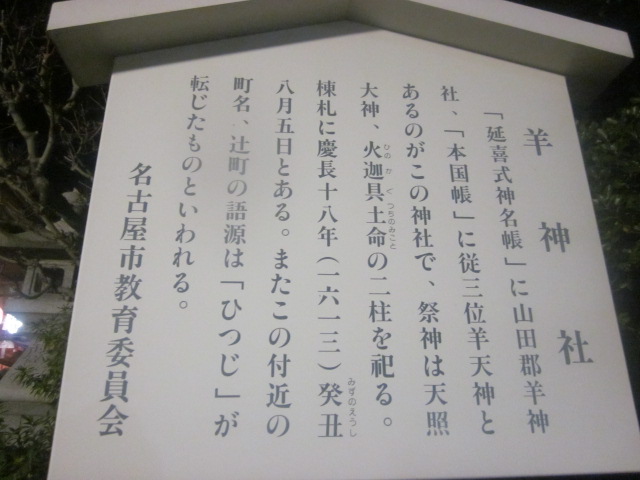 羊神社
「延喜式神名帳」に山田郡羊神
社、「本国帳」に従三位羊天神と
あるのがこの神社で、祭神は天照
大神、火迦具土命の二柱を祀る。
ひのかぐつちのみこと
棟札に慶長十八年(一六一三)癸丑
みずのえうし
八月五日とある。またこの付近の
町名、辻町の語源は「ひつじ」が
転じたものといわれる。
名古屋市教育委員会